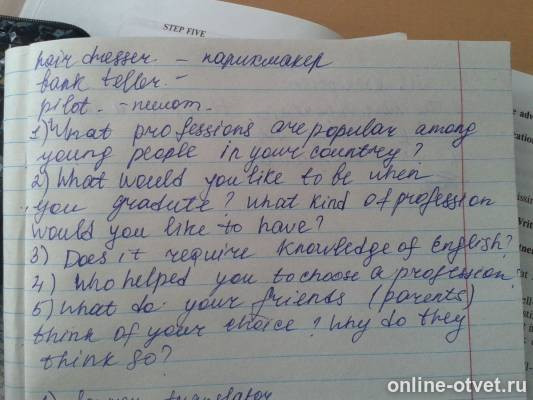 STEP FIVE
hair dresser. - парикмахер
bank teller. -
pilot. - пилот.
1) What professions are popular among
young people in your country?
2) What would you like to be when
you gradute? What kind of profession
would you like to have?
3) Does it require knowledge of English?
4) Who helped you to choose a profession.
5) What do your friends (parents)
think of your choice? Why do they
think so?
translator
online-otvet.ru